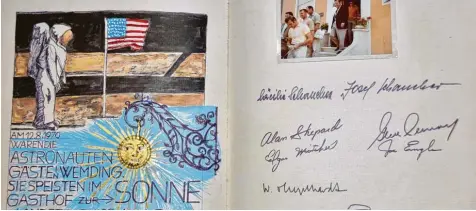 AM 12.8.1970
WAREN DIE
ASTRONAUTEN
GÄSTE, WEMDING.
SIE SPEISTEN IM
GASTHOF ZUR → SONNE
Josef
Alan Shepard
Gene Cernan
Edgar Mitchell
Joe Engle
W. v. Engelhardt